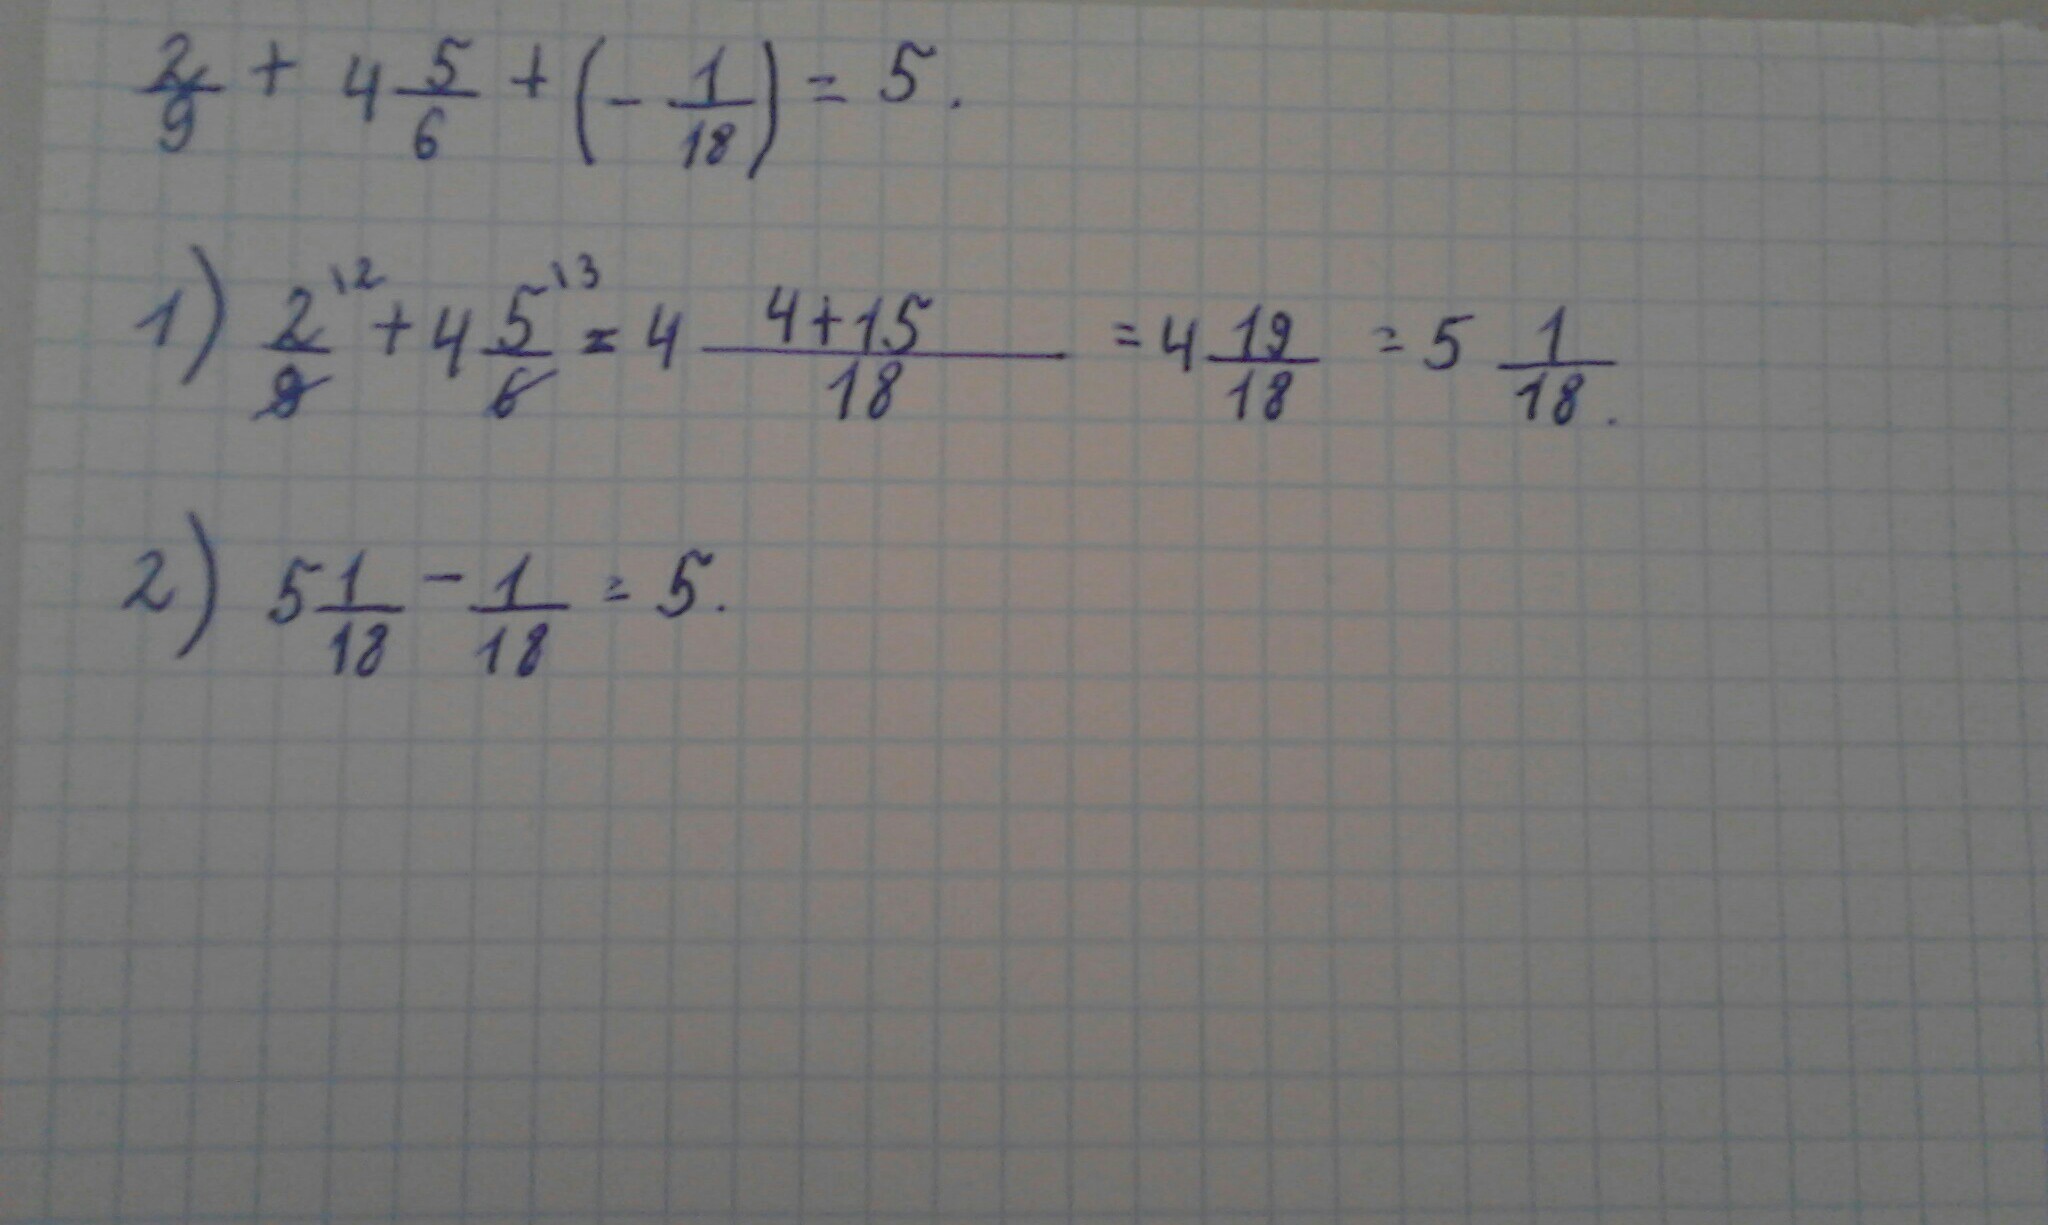 2/9 + 4 5/6 + (- 1/18) = 5.
1) 2/9 \2 + 4 5/6 \3 = 4 4+15/18 = 4 19/18 = 5 1/18.
2) 5 1/18 - 1/18 = 5.